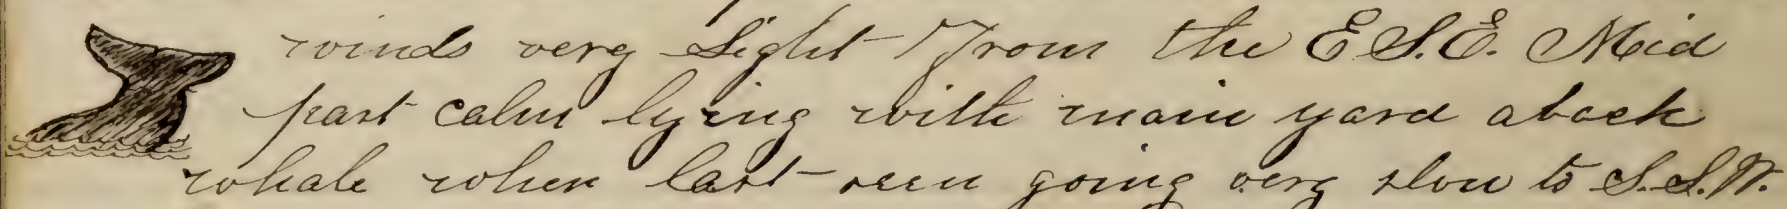 winds very Light From the E.S.E. Mid
part calm lying with main yard aback
whale when last seen going very slow to S.S.W.